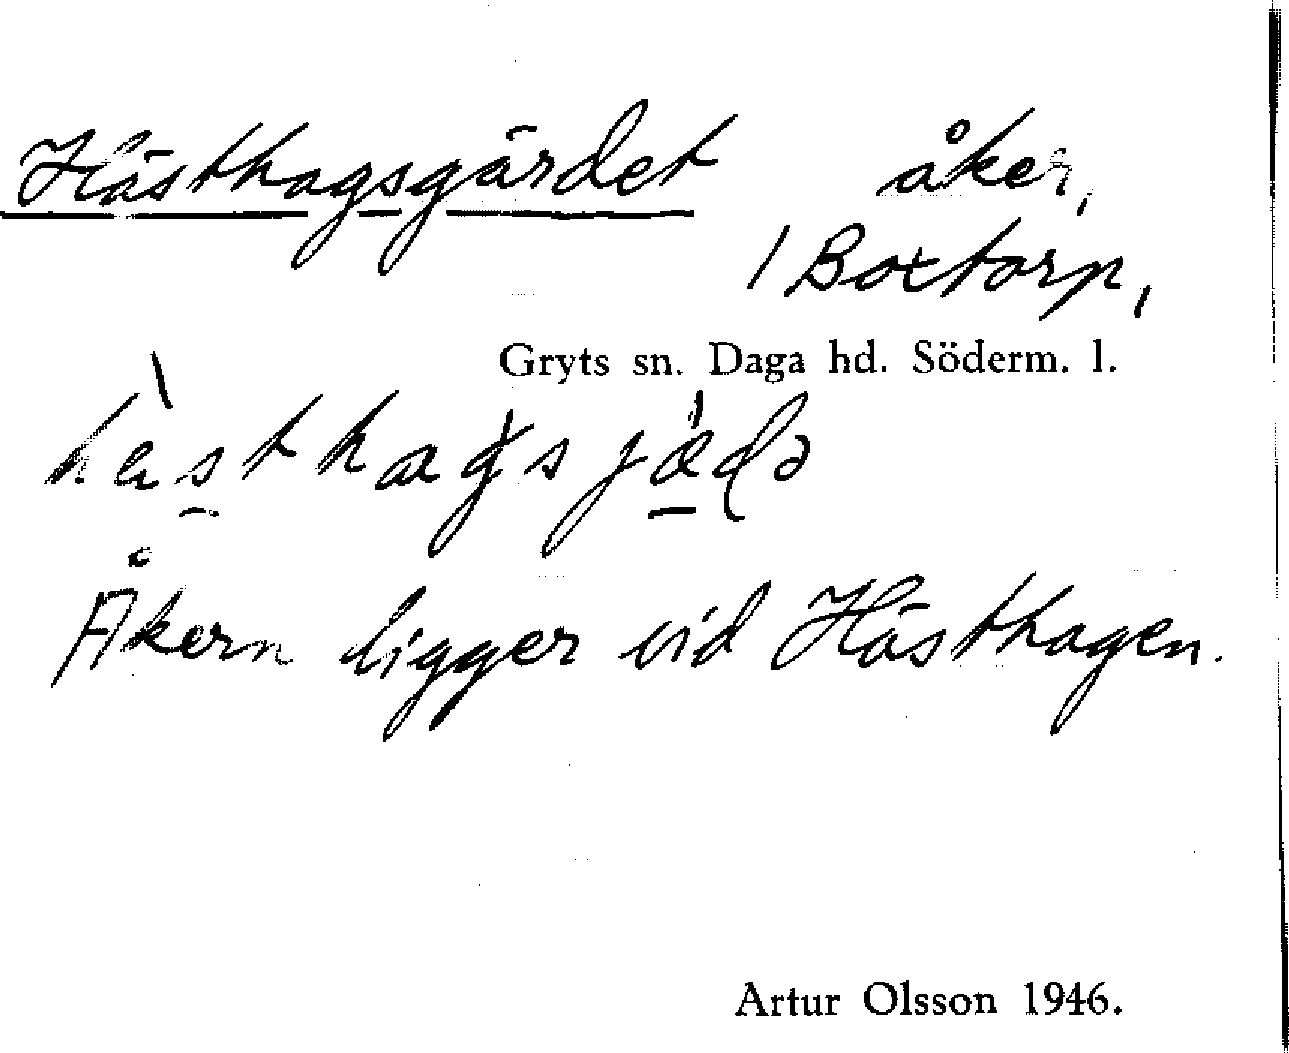 Hästhagsgärdet åker,
/ Boxtorp,
Gryts sn. Daga hd. Söderm. l.
Åkern ligger vid Hästhagen.
Artur Olsson 1946.